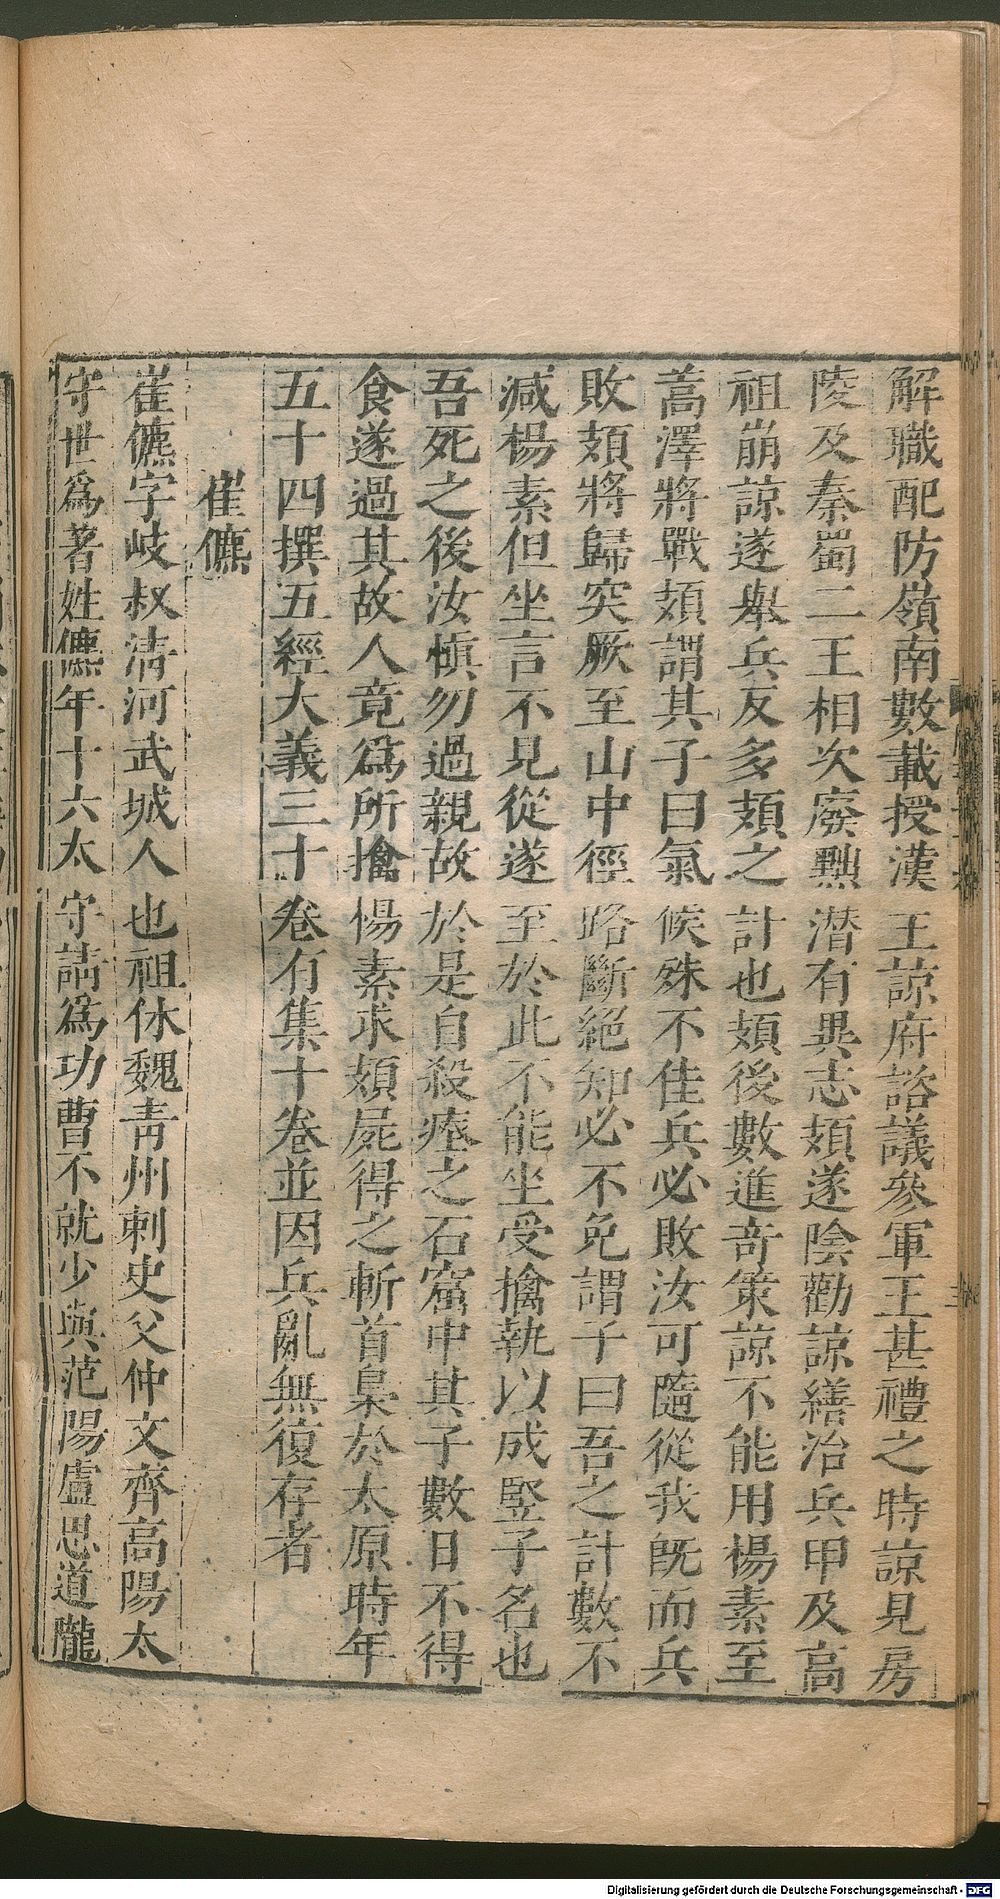 解職配防嶺南數載授漢王諒府諮議參軍王甚禮之時諒見房
陵及秦蜀二王相次廢黜潛有異志頍遂陰勸諒繕治兵甲及高
祖崩諒遂舉兵反多頍之計也頍後數進奇策諒不能用楊素至
蒿澤將戰頍謂其子曰氣候殊不佳兵必敗汝可隨從我旣而兵
敗頍將歸突厥至山中徑路斷絕知必不免謂子曰吾之計數不
減楊素但坐言不見從遂至於此不能坐受擒執以成豎子名也
吾死之後汝愼勿過親故於是自殺瘞之石窟中其子數日不得
食遂過其故人竟爲所擒楊素求頍屍得之斬首梟於太原時年
五十四撰五經大義三十卷有集十卷並因兵亂無復存者
崔儦
崔儦字岐叔淸河武城人也祖休魏靑州刺史父仲文齊高陽太
守世爲著姓儦年十六太守請爲功曹不就少與范陽盧思道隴
Digitalisierung gefördert durch die Deutsche Forschungsgemeinschaft - DFG